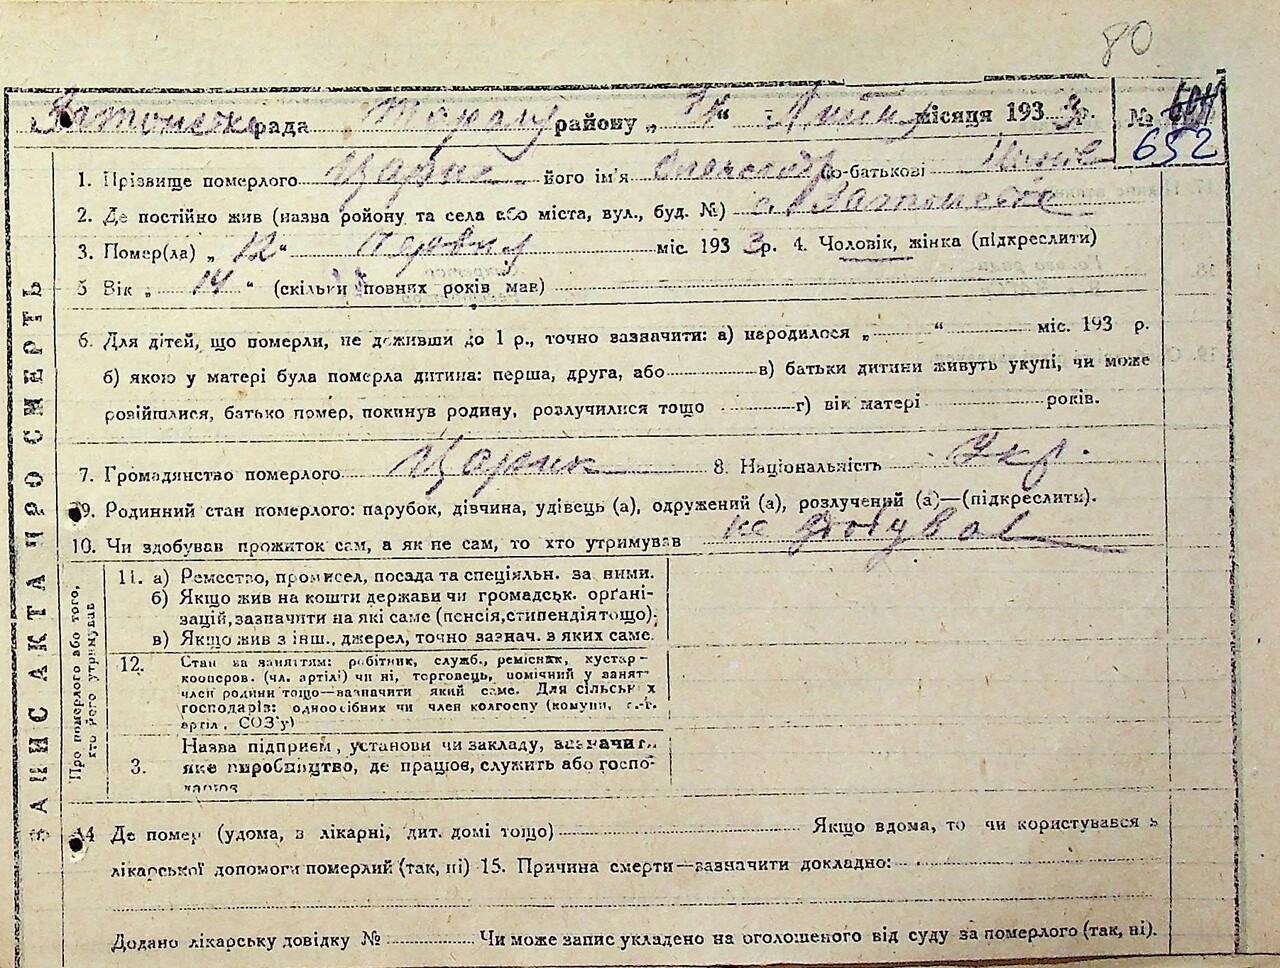 80
рада району „ “ місяця 193 3 р. №
652
1. Прізвище померлого Царик його ім'я Олександр по-батькові
2. Де постійно жив (назва району та села або міста, вул., буд. №) с.
3. Помер(ла) „ 12 “ червня міс. 193 3 р. 4. Чоловік, жінка (підкреслити)
5 Вік „ 14 “ (скільки повних років мав)
6. Для дітей, що померли, не доживши до 1 р., точно зазначити: а) народилося „ “ міс. 193 р.
б) якою у матері була померла дитина: перша, друга, або в) батьки дитини живуть укупі, чи може
розійшлися, батько помер, покинув родину, розлучилися тощо г) вік матері років.
7. Громадянство померлого Царик 8. Національність Укр.
9. Родинний стан померлого: парубок, дівчина, удівець (а), одружений (а), розлучений (а)—(підкреслити).
10. Чи здобував прожиток сам, а як не сам, то хто утримував не здобував
ЗАПИС АКТА ПРО СМЕРТЬ
Про померлого або того, хто його утримував
11. а) Ремество, промисел, посада та спеціяльн. за ними.
б) Якщо жив на кошти держави чи громадськ. орґані-
зацій, зазначити на які саме (пенсія, стипендія тощо);
в) Якщо жив з інш., джерел, точно зазнач. в яких саме.
12. Стан за заняттям: робітник, служб., ремісник, кустар-
кооперов. (чл. артілі) чи ні, торговець, помічний у занят
член родини тощо—зазначити який саме. Для сільськ х
господарів: одноосібних чи член колгоспу (комуни, с.-г.
артіл, СОЗ'у)
Назва підприєм, установи чи закладу, зазначит.
3. яке виробництво, де працюв, служить або госпо-
14 Де помер (удома, в лікарні, дит. домі тощо) Якщо вдома, то чи користувався з
лікарської допомоги померлий (так, ні) 15. Причина смерти—зазначити докладно:
Додано лікарську довідку № Чи може запис укладено на оголошеного від суду за померлого (так, ні).